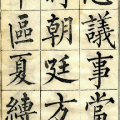 議事當
朝廷方
時區夏縛